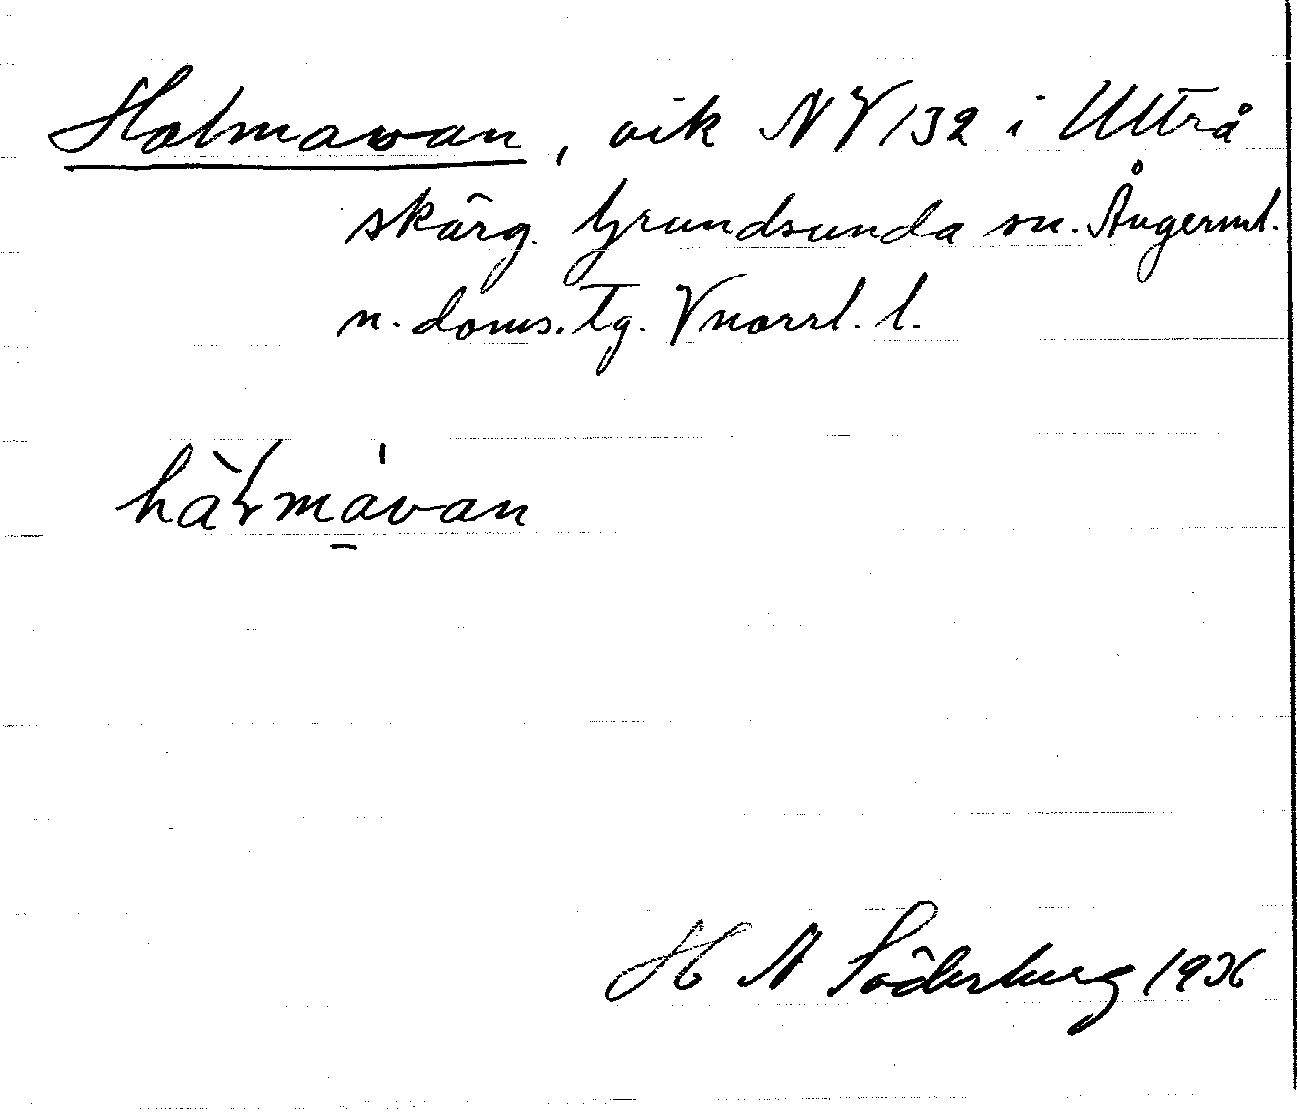 Holmavan, vik NV 132 i Ultrå
skärg. Grundsunda sn. Ångerml.
n. doms. tg. Vnorrl. l.
hàɫmávan
H N Söderberg 1936